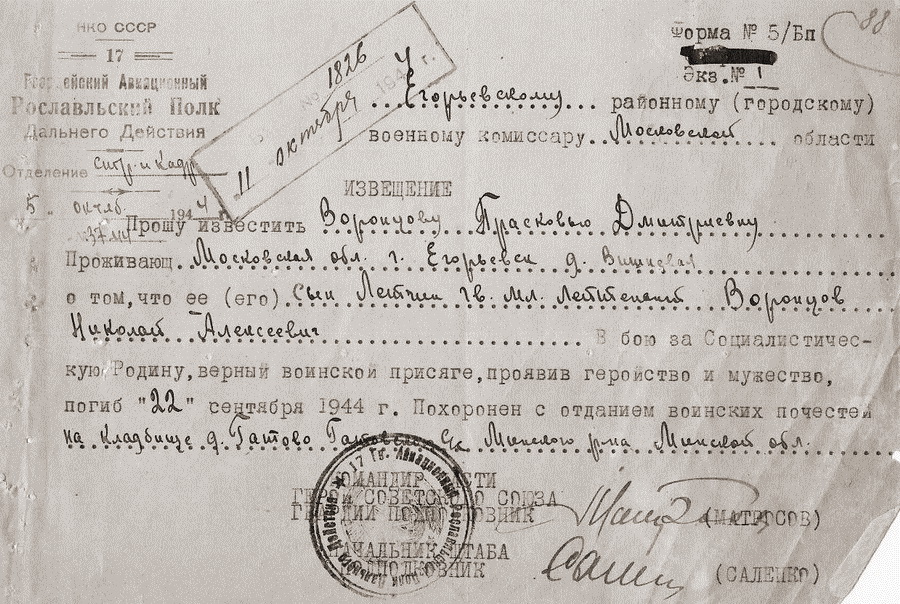 НКО СССР
17
Гвардейский Авиационный
Рославльский Полк
Дальнего Действия
Отделение
5. октяб. 1944 г.
№ 1826
11 октября 194 г.
Форма № 5/Бп
Экз.№ 1
88
Егорьевскому районному (городскому)
военному комиссару Московской области
ИЗВЕЩЕНИЕ
Прошу известить Воронцову Прасковью Дмитриевну
Проживающ. Московская обл. г. Егорьевск д.
о том,что ее (его) сын Летчик гв. мл. лейтенант Воронцов
Николай Алексеевич В бою за Социалистичес-
кую Родину,верный воинской присяге,проявив геройство и мужество,
погиб "22" сентября 1944 г. Похоронен с отданием воинских почестей
на кладбище д. Гатово с/с Минского р-на Минской обл.
КОМАНДИР ЧАСТИ
ГЕРОЙ СОВЕТСКОГО СОЮЗА
ГВАРДИИ ПОДПОЛКОВНИК (МАТРОСОВ)
НАЧАЛЬНИК ШТАБА
ПОДПОЛКОВНИК (САЛЕНКО)
17 Гв. Авиационный Рославльский Полк Дальнего Действия